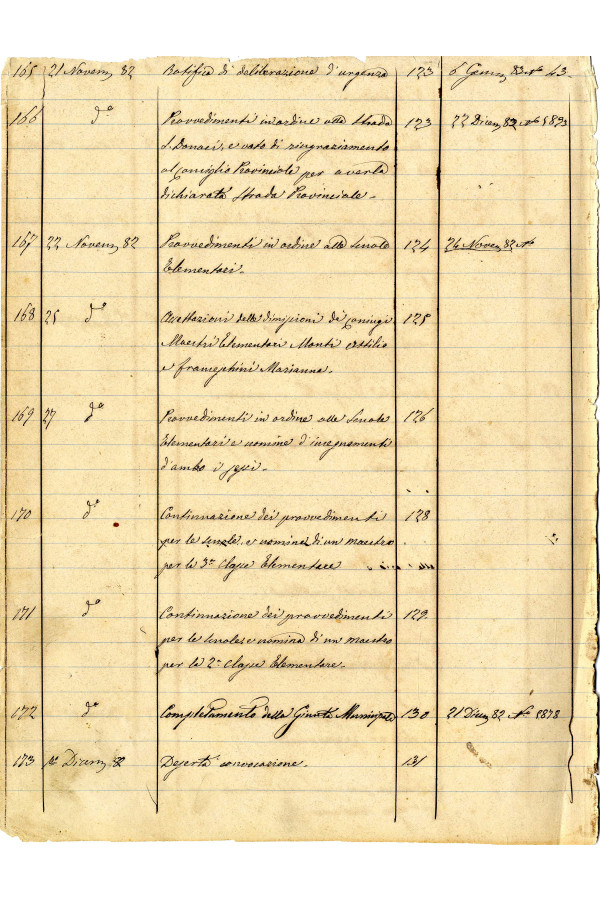 165 21 Novem 82 Ratifica di deliberazione d'urgenza 123 6 Genn 83 N° 43.
166 d° Provvedimenti in ordine alla strada 123 22 Dicem 82 N° 5893
S. Donaci, e voto di ringraziamento
al Consiglio Provinciale per averla
dichiarata Strada Provinciale.
167 22 Novem 82 Provvedimenti in ordine alle Scuole 124 26 Novem 82 N°
Elementari.
168 25 d° Accettazioni delle dimissioni de' coniugi 125
Maestri Elementari Monti Attilio
e Franceschini Marianna.
169 27 d° Provvedimenti in ordine alle Scuole 126
Elementari e nomine d'insegnamenti
d'ambo i sessi.
170 d° Continuazione dei provvedimenti 128
per le scuole, e nomina di un maestro
per la 3ª Classe Elementare
171 d° Continuazione dei provvedimenti 129
per le scuole, e nomina di un maestro
per la 2ª Classe Elementare.
172 d° Completamento della Giunta Municipale 130 21 Dicem 82 N° 5878
173 Dicem 82 Deserta convocazione. 131